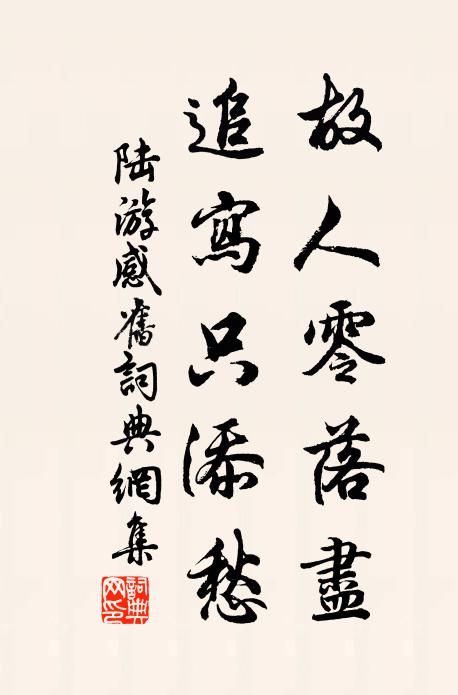 故人零落盡
追寫只添愁
陸游感舊詞典網集
詞典網印